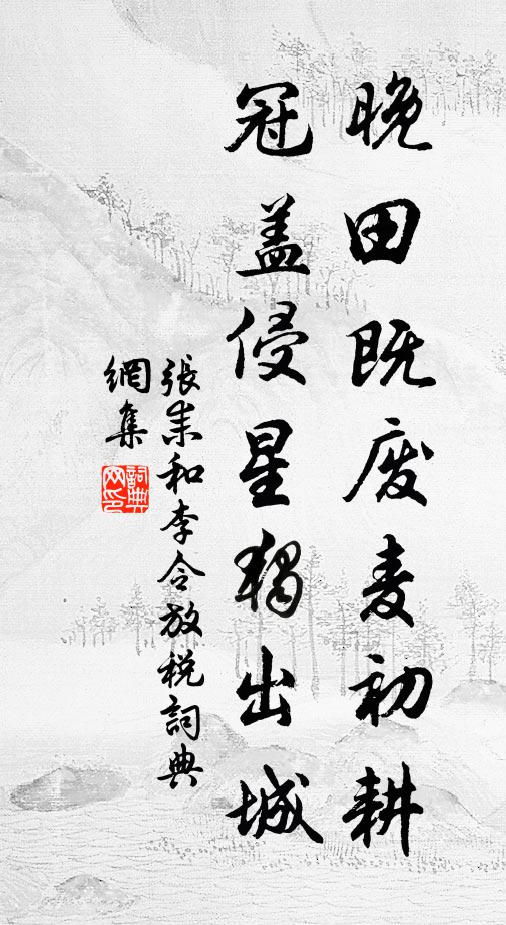 晚田既废麦初耕
冠盖侵星独出城
張耒和李令放税詞典
網集
詞典网印